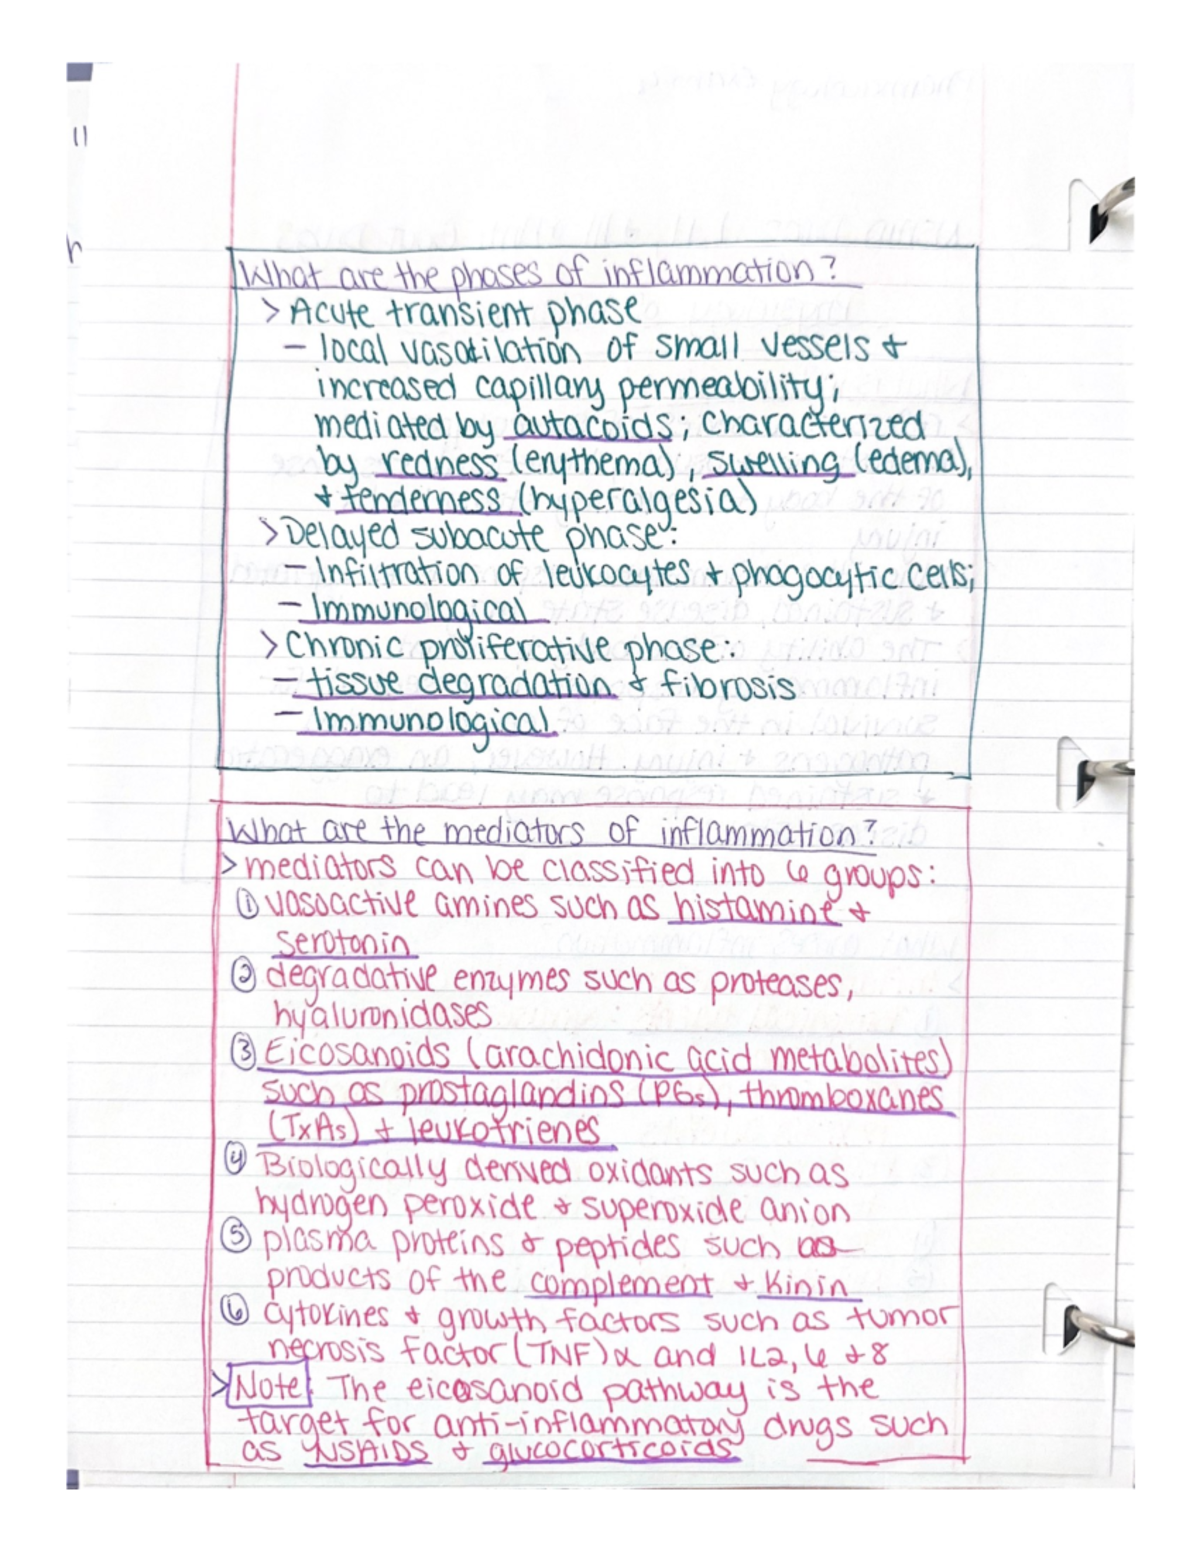 11
h
What are the phases of inflammation?
> Acute transient phase
– local vasotilation of small vessels &
increased capillary permeability;
mediated by autacoids; characterized
by redness (erythema), swelling (edema),
& tenderness (hyperalgesia)
> Delayed subacute phase:
– Infiltration of leukocytes & phagocytic cells;
– Immunological
> Chronic proliferative phase:
– tissue degradation & fibrosis
– Immunological
What are the mediators of inflammation?
> mediators can be classified into 6 groups:
① vasoactive amines such as histamine &
serotonin
② degradative enzymes such as proteases,
hyaluronidases
③ Eicosanoids (arachidonic acid metabolites)
such as prostaglandins (PGs), thromboxanes
(TxAs) & leukotrienes
④ Biologically derived oxidants such as
hydrogen peroxide & superoxide anion
⑤ plasma proteins & peptides such as
products of the complement & Kinin
⑥ cytokines & growth factors such as tumor
necrosis factor (TNF) α and IL2, 6 & 8
> Note: The eicosanoid pathway is the
target for anti-inflammatory drugs such
as NSAIDS & glucocorticoids